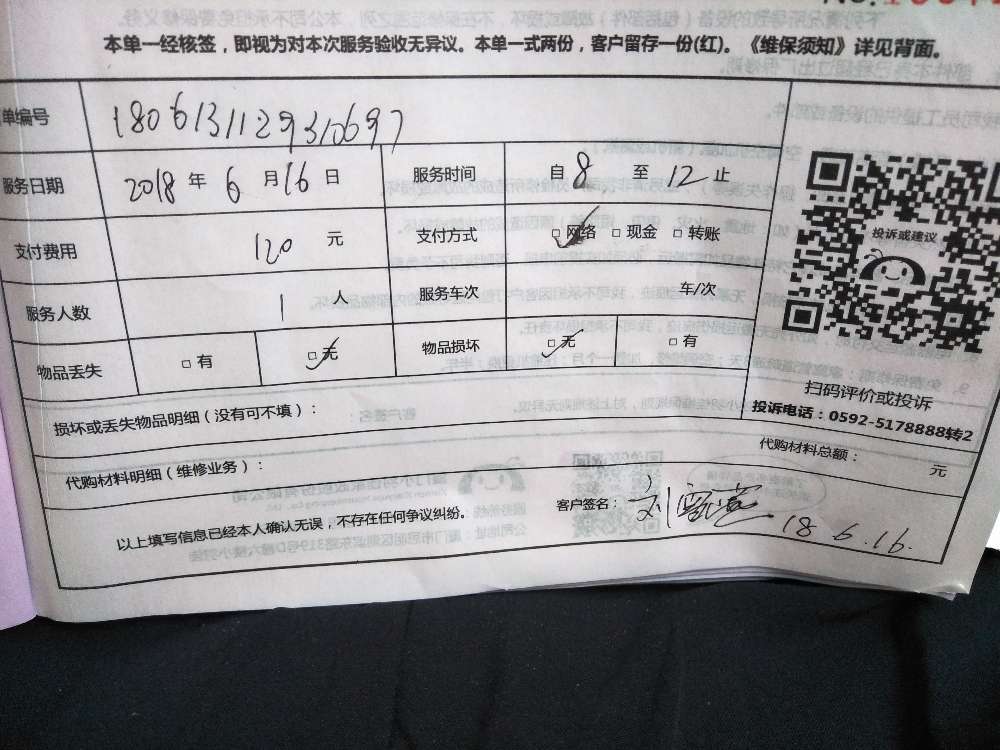 No.
本单一经核签，即视为对本次服务验收无异议。本单一式两份，客户留存一份(红)。《维保须知》详见背面。
单编号 1806131129310697
服务日期 2018 年 6 月 16 日 服务时间 自 8 至 12 止
支付费用 120 元 支付方式 □ 网络 □ 现金 □ 转账
投诉或建议
服务人数 1 人 服务车次 车/次
物品丢失 □ 有 □ 无 物品损坏 □ 无 □ 有
扫码评价或投诉
投诉电话：0592-5178888转2
损坏或丢失物品明细（没有可不填）：
代购材料明细（维修业务）： 代购材料总额： 元
以上填写信息已经本人确认无误，不存在任何争议纠纷。 客户签名： 刘 18.6.16.